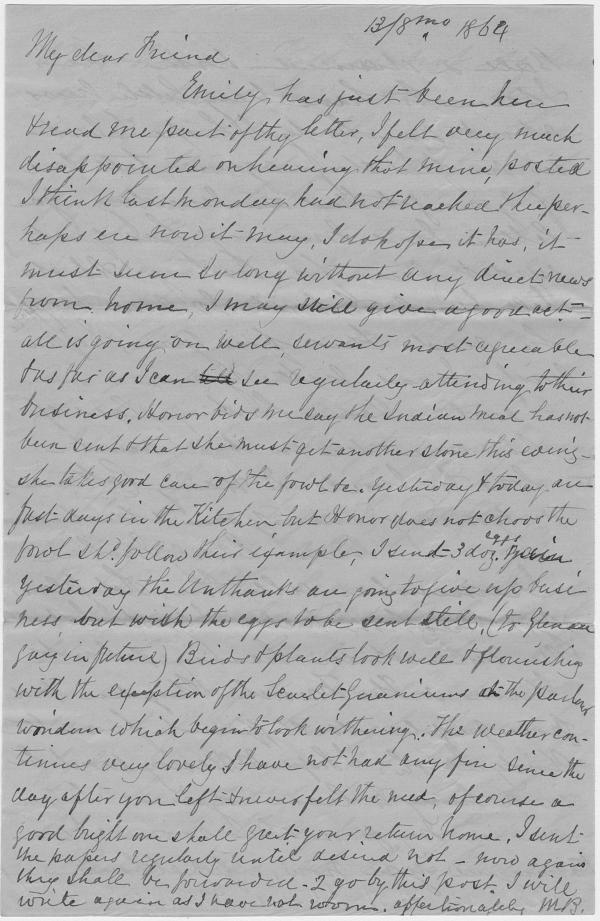 13/8 mo 1864
My dear Friend
Emily has just been here
& read me part of thy letter, I felt very much
disappointed on hearing that mine, posted
I think last Monday had not reached thee per-
haps ere now it may, I do hope it has, it
must seem so long without any direct news
from home, I may still give a good act-
all is going on well, servants most agreeable
& as far as I can tell see regularly attending to their
business. Honor bids me say the Indian meal has not
been sent & that she must get another stone this eving-
she takes good care of the fowl &c. Yesterday & today are
fast days in the Kitchen but Honor does not choose the
fowl shd. follow their example, I send 3 doz. eggs
Yesterday the Unthanks are going to give up busi
ness but wish the eggs to be sent still, (to
in future) Birds & plants look well & flourishing
with the exception of the Scarlet Geraniums at the parlour
window which begin to look withering. The weather con-
tinues very lovely I have not had any fire since the
day after you left & never felt the need, of course a
good bright one shall greet your return home. I sent
the papers regularly until desired not - now again
they shall be forwarded - 2 go by this post. I will
write again as I have not room. affectionately M.B.